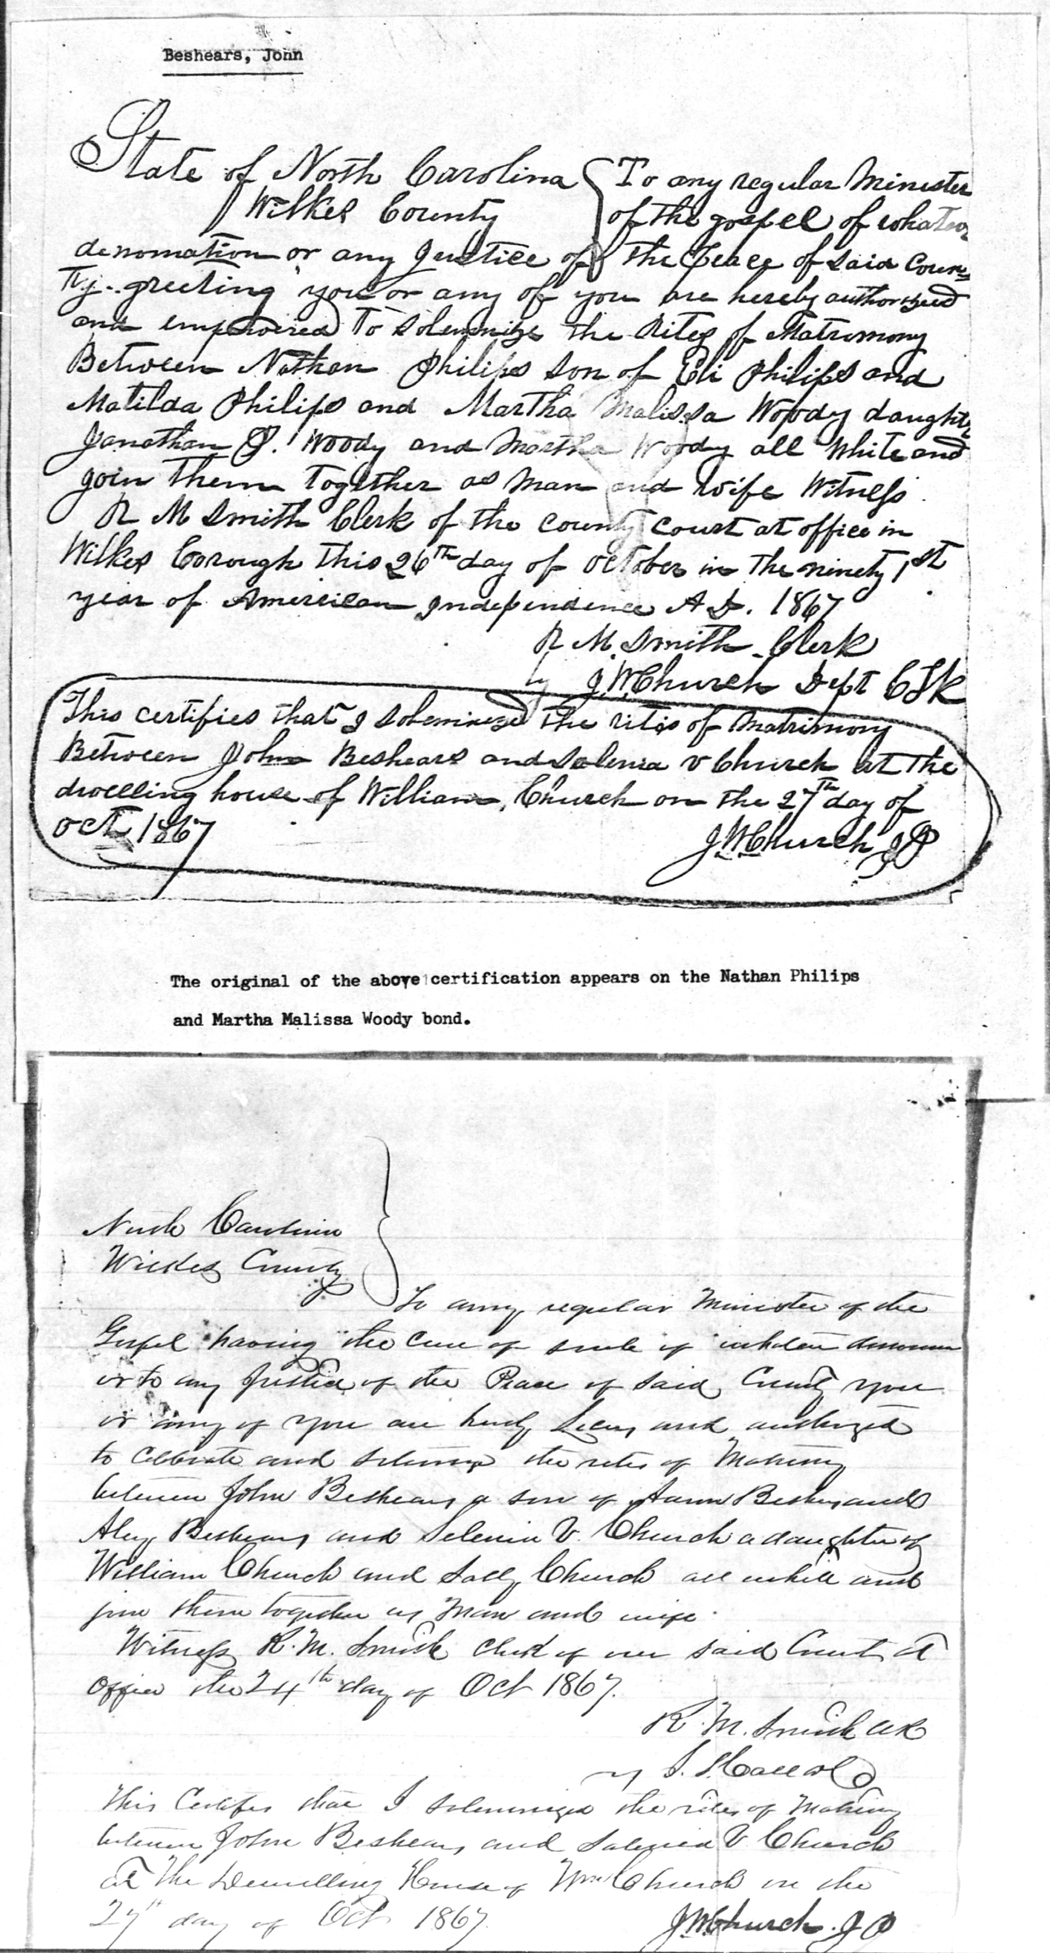 Beshears, John
State of North Carolina
Wilkes County
To any regular Minister
of the gospel of whatever
denomination or any Justice of the Peace of said Coun
ty. greeting you or any of you are hereby authorized
and empowered to solemnize the Rites of Matrimony
Between Nathan Philips son of Eli Philips and
Matilda Philips and Martha Malissa Woody daughter
Jonathan P. Woody and Martha Woody all White and
join them together as man and wife Witness
R M Smith Clerk of the county court at office in
Wilkes borough this 26th day of October in the ninety 1st
year of American Independence A D. 1867
R M. Smith Clerk
by J W Church Dept Clk
This certifies that I Solemnized the rites of Matrimony
Between John Beshears and Salenia V Church at the
dwelling house of William Church on the 27th day of
Oct 1867
J W Church J P
The original of the above certification appears on the Nathan Philips
and Martha Malissa Woody bond.
North Carolina
Wilkes County
To any regular Minister of the
Gospel having the Cure of souls of
or to any Justice of the Peace of said County you
or any of you are and
to Celebrate and the rites of
between John Beshears a son of Aaron Beshears and
Beshears and Selenia V. Church a daughter of
William Church and Sally Church all white and
join them together as Man and wife.
Witness R. M. Smith Clerk of our said Court at
Office the 24th day of Oct 1867.
R. M. Smith Clk
This Certifies that I Solemnized the rites of
between John Beshears and Salenia V Church
at The Dwelling House of Wm Church on the
27th day of Oct 1867.
J W Church. J P